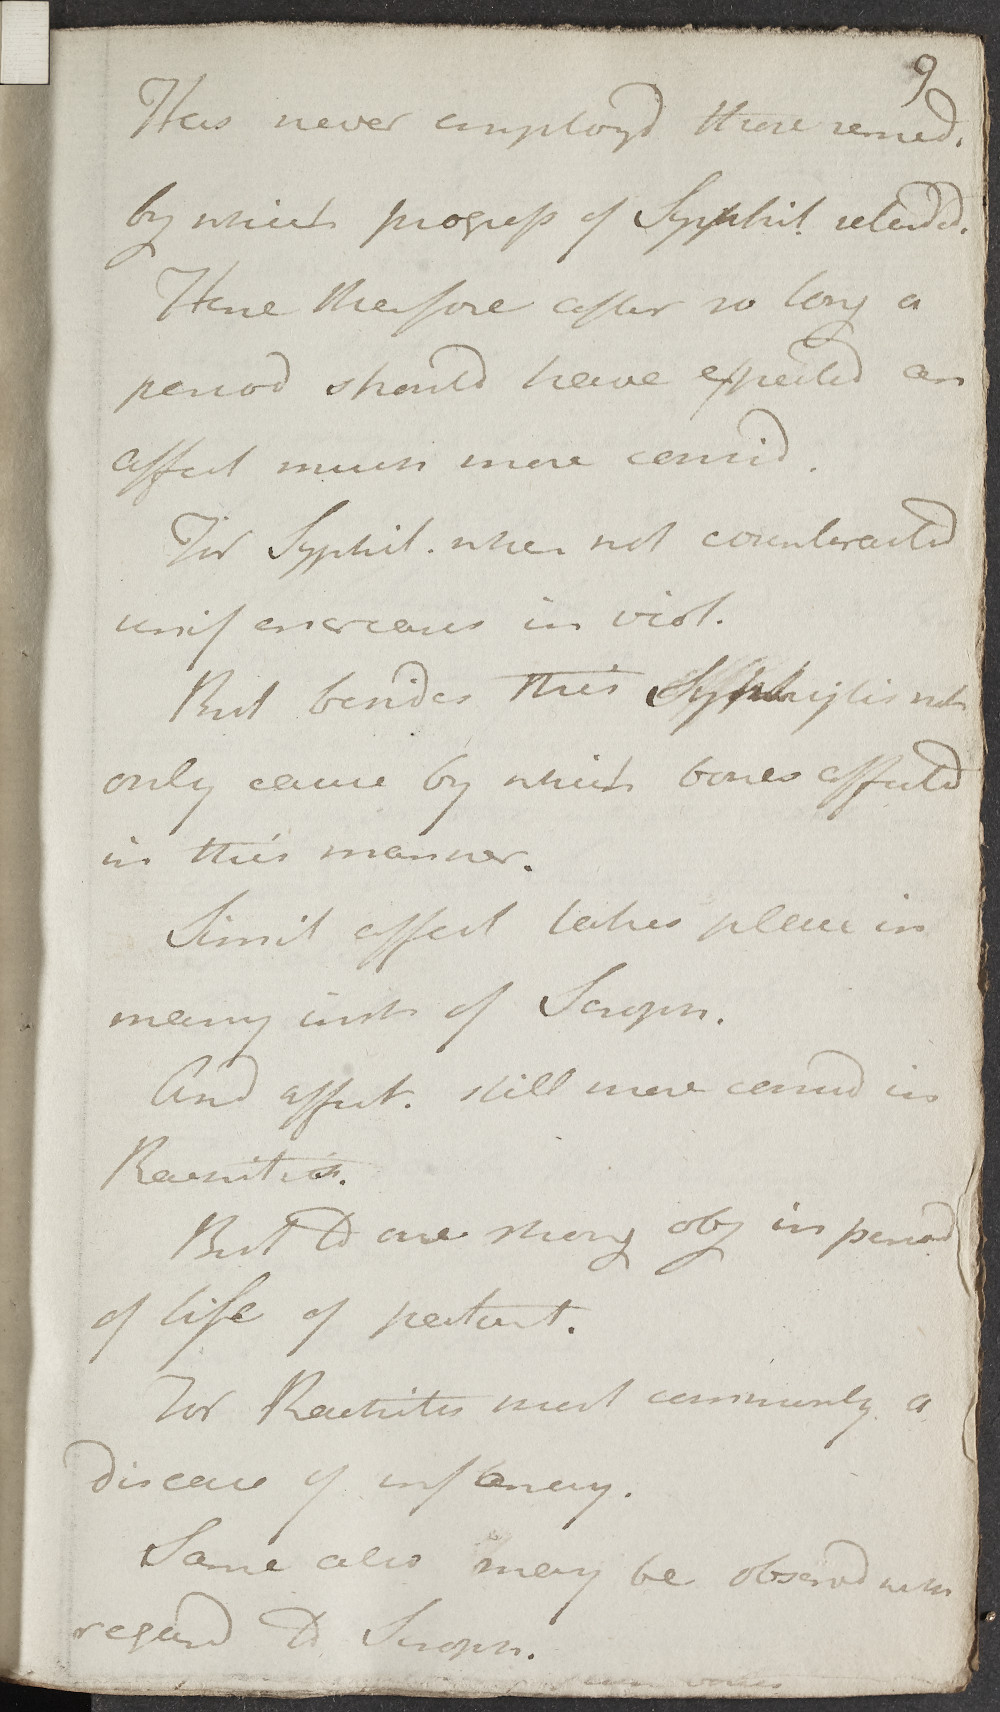 9
Has never employd those remed.
by which progress of Syphil. retard.
Have therefore after so long a
period should have expected an
affect much more consid.
For Syphil. when not counteracted
unif encreases in viol.
But besides this Syphilis not
only cause by which bones affected
in this manner.
Simil affect takes place in
many inst of Scroph.
And affect. still more consid in
Rachitis.
But to are strong obj in period
of life of patient.
For Rachitis most commonly a
disease of infancy.
Same also may be observd with
regard to Scroph.